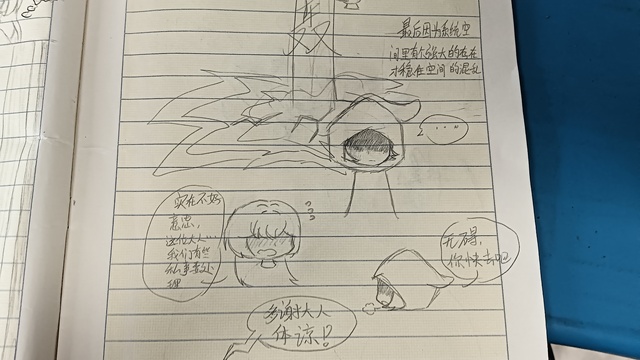 最后因为系统空
间里有个强大的存在
才稳住空间的混乱
....
实在不好
意思,
这位大人...
我们有些
私事要处
理
无碍,
你快去吧
多谢大人
体谅!!